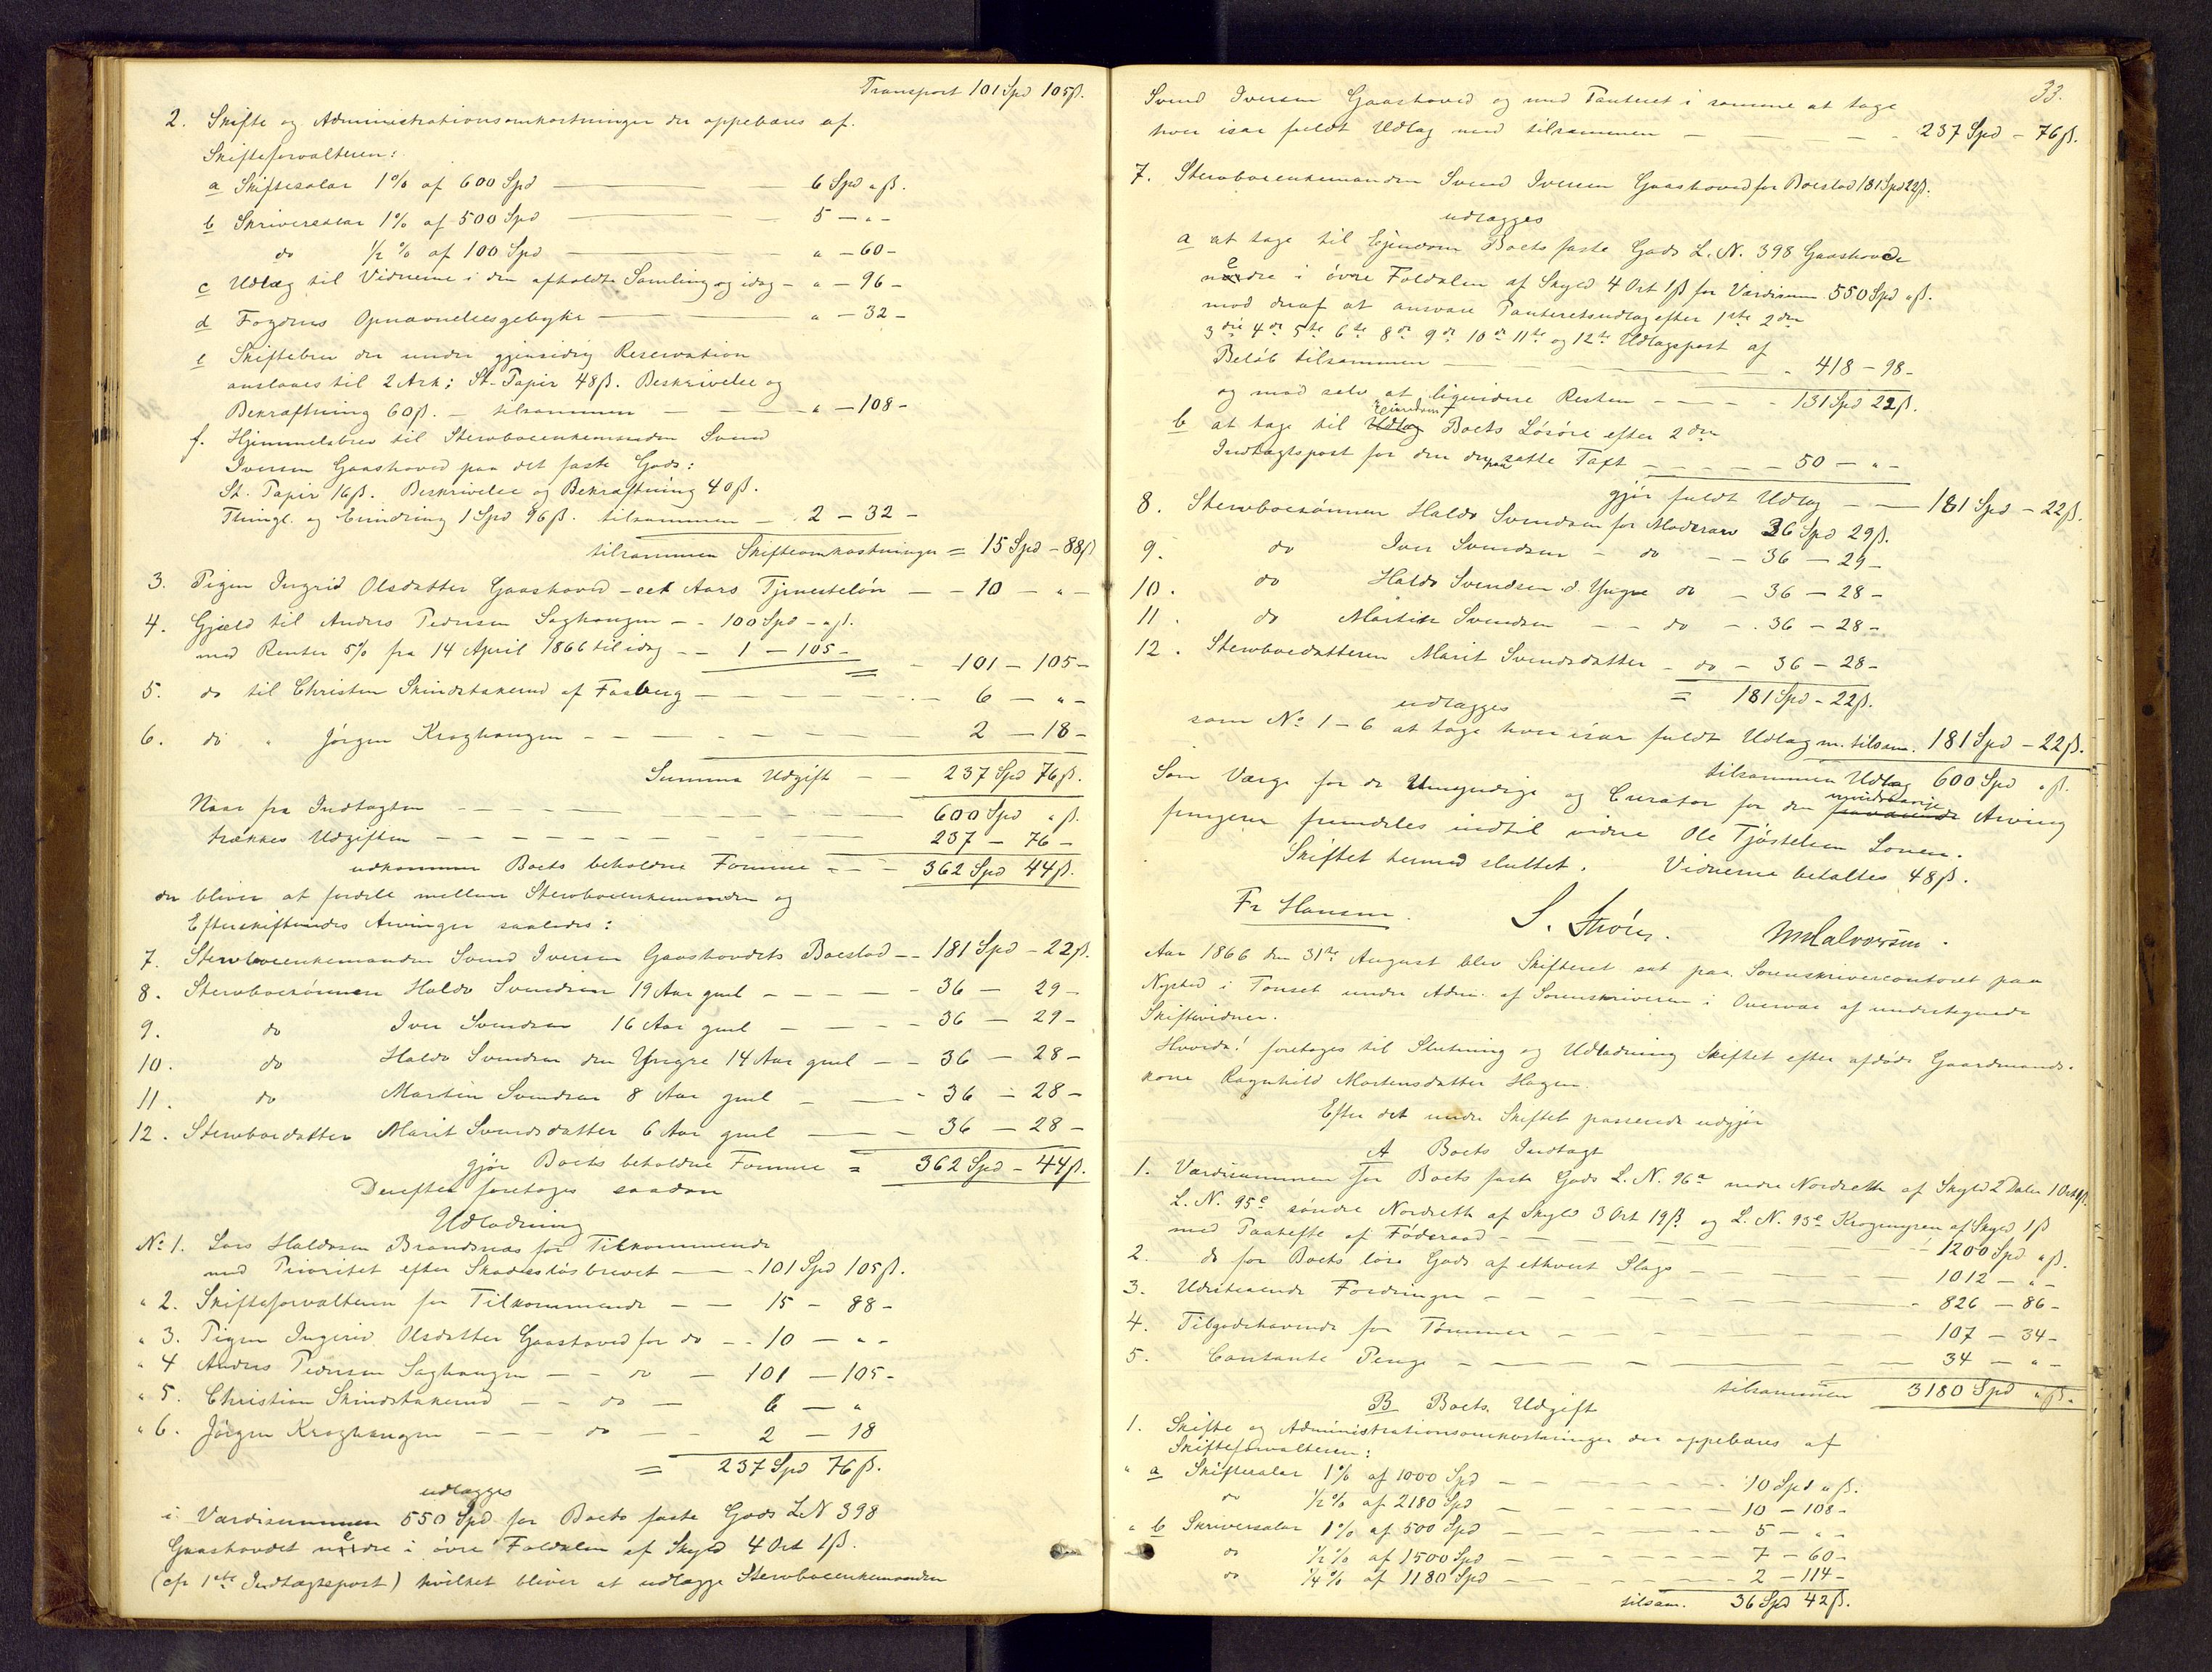 Transport 101 Spd 105ß.
2. Skifte og Administrationsomkostninger der oppebæres af
Skifteforvalteren:
a Skiftesalær 1% af 600 Spd — 6 Spd „ ß.
b Skriversalær 1% af 500 Spd — 5 — „ -
do ½ % af 100 Spd — „ — 60 -
c Udlæg til Vidnerne i den afholdte Samling og idag - „ — 96 -
d Fogdens Opnævnelsesgebyhr — „ — 32 -
e Skiftebrev der under gjensidig Reservation
anslaaes til 2 Ark: St. Papir 48ß. Beskrivelse og
Bekræftning 60ß. — tilsammen — „ — 108 -
f. Hjemmelsbrev til Stervboenkemanden Svend
Iversen Gaashoved paa det faste Gods:
St. Papir 16ß. Beskrivelse og Bekræftning 40ß.
Thingl. og Erindring 1 Spd 96ß. tilsammen — 2 — 32 -
tilsammen Skifteomkostninger = 15 Spd - 88ß
3. Pigen Ingrid Olsdatter Gaashoved - eet Aars Tjenesteløn — - 10 — „ -
4. Gjæld til Anders Pedersen Saghaugen - - 100 Spd - „ ß.
med Renter 5% fra 14 April 1866 til idag - - 1 — 105 -
- 101 - 105 -
5. do til Christen Skindstakerud af Faaberg — 6 — „ -
6. do „ Jørgen Kroghaugen - - — 2 — 18 -
Summa Udgift — — 237 Spd 76ß.
Naar fra Indtægten — 600 Spd „ ß.
trækkes Udgiften — 237 — 76 -
udkommer Boets beholdne Formue - - - 362 Spd 44ß.
der bliver at fordele mellem Stervboenkemanden og
Efterskiftendes Arvinger saaledes:
7. Stervboenkemanden Svend Iversen Gaashovdets Boeslod - - 181 Spd - 22ß.
8. Stervboesønnen Haldo Svendsen 19 Aar gml — 36 — 29 -
9. do Iver Svendsen 16 Aar gml — 36 — 29 -
10. do Haldo Svendsen den Yngre 14 Aar gml — - 36 — 28 -
11. do Martin Svendsen 8 Aar gml — 36 — 28 -
12. Stervboedatter Marit Svendsdatter 6 Aar gml — 36 — 28 -
gjør Boets beholdne Formue = 362 Spd - 44ß.
Derefter foretages saadan
Udlodning
No 1. Lars Haldosen Brandsnæs for Tilkommende
med Prioritet efter Skadesløsbrevet — - 101 Spd 105ß.
„ 2. Skifteforvalteren for Tilkommende — — 15 - 88 -
„ 3. Pigen Ingerid Olsdatter Gaashoved for do - - 10 — „ -
„ 4 Anders Pedersen Saghaugen — - do — 101 — 105 -
„ 5. Christian Skindstakerud — - do — 6 — „
„ 6. Jørgen Kroghaugen — - - do — - 2 — 18
= 237 Spd 76ß.
udlægges
i Værdisummen 550 Spd for Boets faste Gods L N 398
Gaashovdet nedre i øvre Foldalen af Skyld 4 Ort 1ß.
(cfr 1ste Indtægtspost) hvilket bliver at udlægge Stervboenkemanden
33.
Svend Iversen Gaashoved og med Panteret i samme at tage
hver især fuldt Udlæg med tilsammen — 237 Spd - 76ß.
7. Stervboenkemanden Svend Iversen Gaashoved for Boeslod 181 Spd 22ß.
udlægges
a at tage til Ejendom Boets faste Gods L. N. 398 Gaashovde
nedre i øvre Foldalen af Skyld 4 Ort 1ß for Værdisum 550 Spd „ ß.
mod deraf at ansvare Panteretsudlæg efter 1ste 2den
3die 4de 5te 6te 8de 9de 10de 11te og 12te Udlægspost af
Beløb tilsammen — 418 - 98 -
og mod selv at liqvidere Resten — 131 Spd 22ß.
b at tage til Udlæg Eiendom Boets Løsøre efter 2den
Indtægtspost for den derpaa satte Taxt — 50 — „ -
gjør fuldt Udlæg — 181 Spd - 22ß.
8. Stervboesønnen Haldo Svendsen for Mødrearv 36 Spd 29ß.
9. do Iver Svendsen - do — - 36 - 29 -
10. do Haldo Svendsen d. Yngre do — 36 - 28 -
11. do Martin Svendsen — - do — - 36 - 28 -
12. Stervboedatteren Marit Svendsdatter - do - 36 - 28 -
= 181 Spd - 22ß.
udlægges
som No 1 - 6 at tage hver især fuldt Udlæg m. tilsam. 181 Spd - 22ß.
tilsammen Udlæg 600 Spd „ ß.
Som Værge for de Umyndige og Curator for den mindreaarige Arving
fungerer fremdeles indtil videre Ole Tjøstelsen Loven.
Skiftet hermed sluttet. Vidnerne betaltes 48ß.
Fr Hansen. S. Strøm. M Halvorsen.
Aar 1866 den 31te August blev Skifteret sat paa Sorenskrivercontoret paa
Nysted i Tønset under Adm. af Sorenskriveren i Overvær af undertegnede
Skiftevidner.
Hvorda! foretoges til Slutning og Udlodning Skiftet efter afdøde Gaardmands-
kone Ragnhild Mortensdatter Hagen.
Efter det under Skiftet passerede udgjør
A Boets Indtægt
1. Værdisummen for Boets faste Gods L. N. 96a nedre Nordreth af Skyld 2 Daler 1 Ort 1ß.
L. N. 95c søndre Nordreth af Skyld 3 Ort 19ß og L. N. 95e Krogmyren af Skyld 1ß
med Paahefte af Føderaad — 1200 Spd „ ß.
2. do for Boets løse Gods af ethvert Slags — 1012 — „ -
3. Udestaaende Fordringer — 826 — 86 -
4. Tilgodehavende for Tømmer — 107 — 34 -
5. Contante Penge — 34 — „ -
tilsammen 3180 Spd „ ß.
B Boets Udgift
1. Skifte og Administrationsomkostninger der oppebæres af
Skifteforvalteren:
„ a Skiftesalær 1% af 1000 Spd — 10 Spd „ ß.
do ½% af 2180 Spd — 10 — 108 -
„ b Skriversalær 1% af 500 Spd — 5 — „ -
do ½% af 1500 Spd — 7 — 60 -
do ¼% af 1180 Spd — 2 — 114 -
tilsam. 36 Spd 42ß.